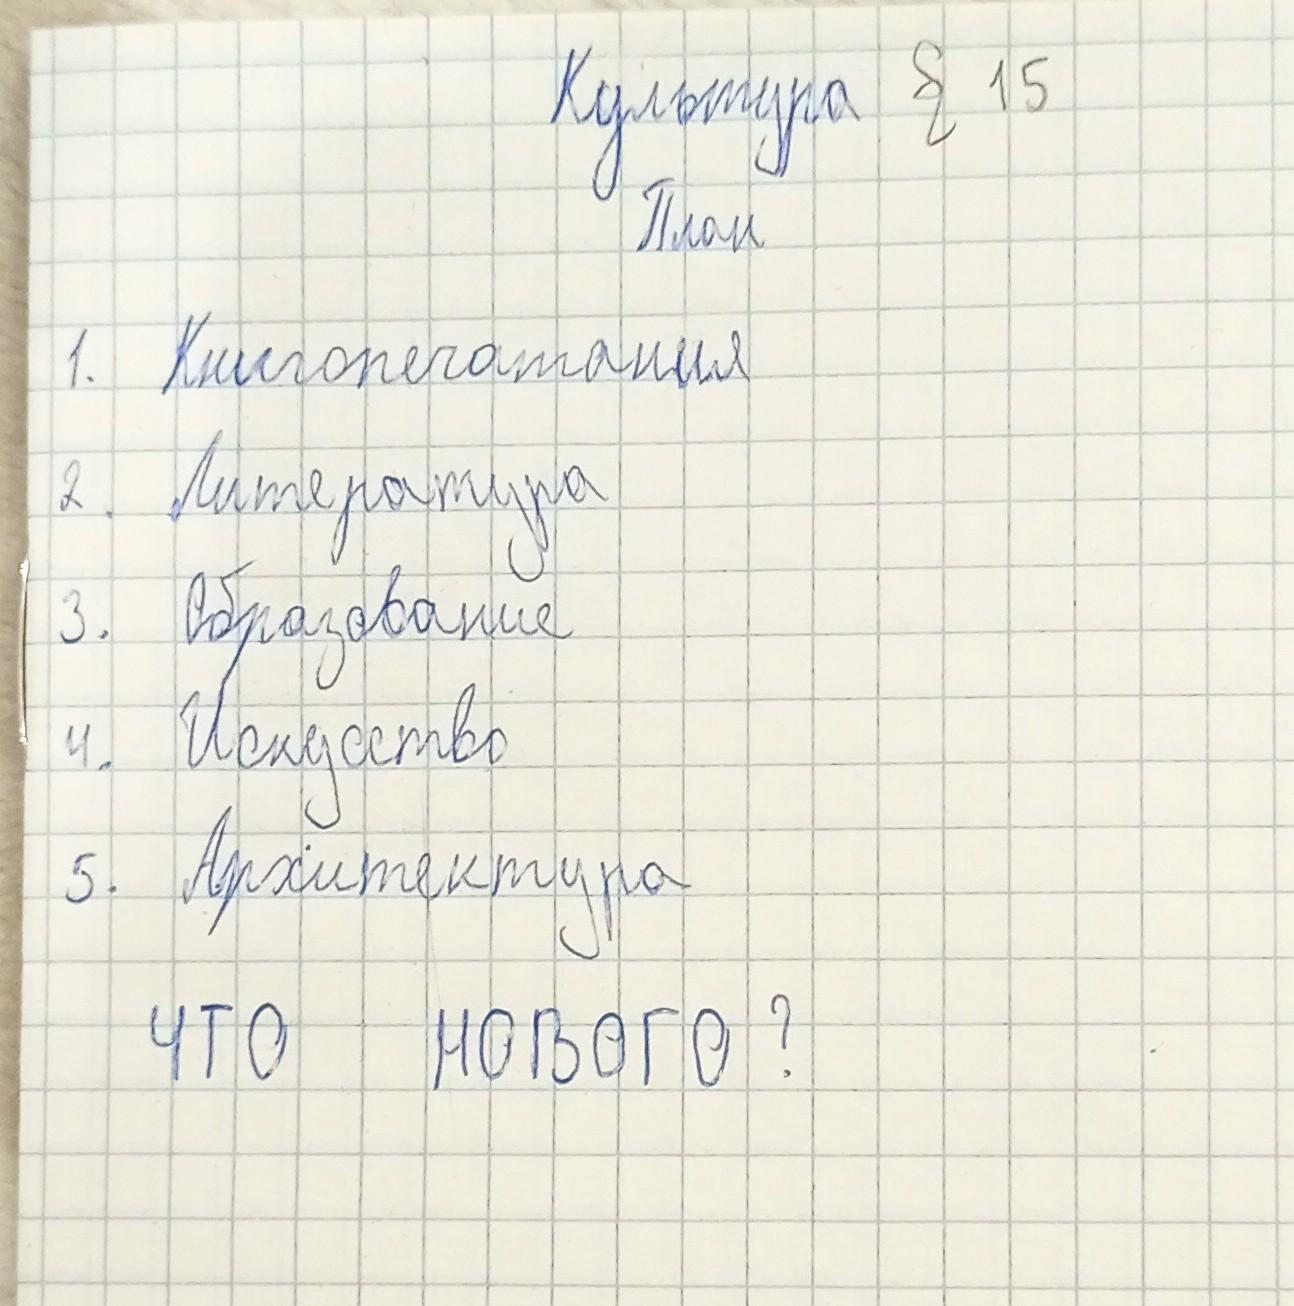 Культура § 15
План
1. Книгопечатания
2. Литература
3. Образование
4. Искусство
5. Архитектура
ЧТО НОВОГО?